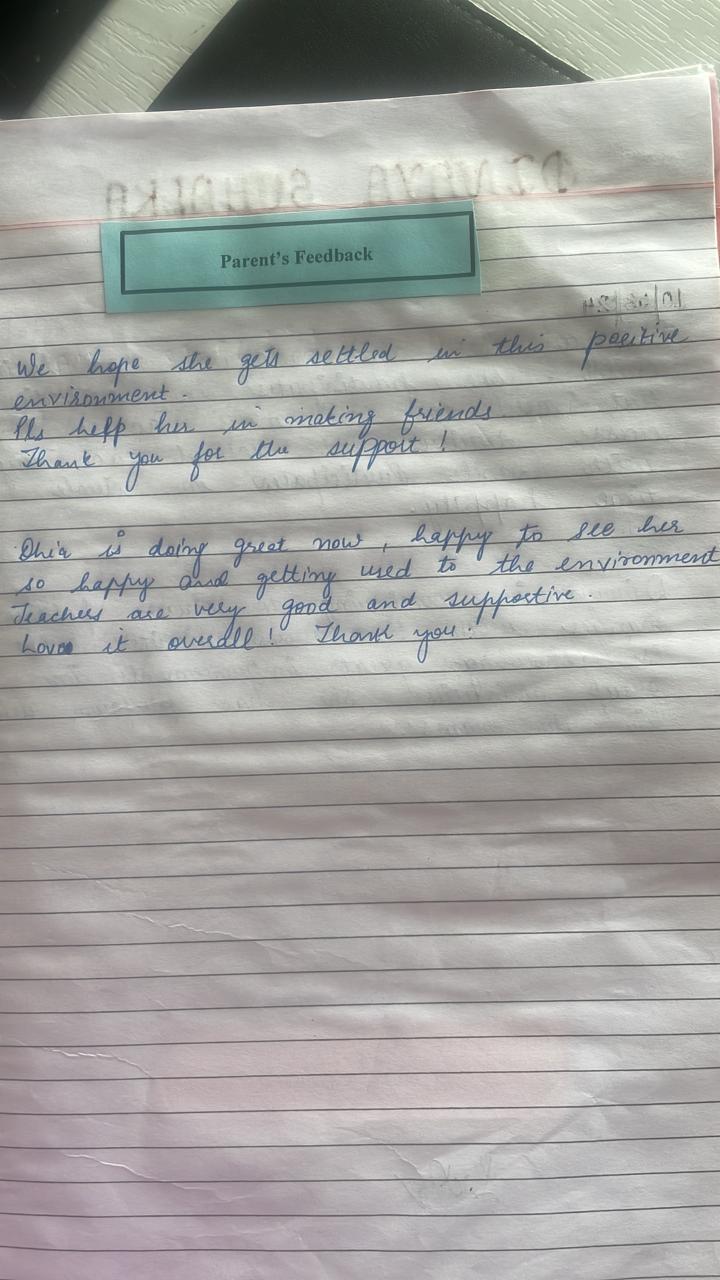 Parent's Feedback
We hope she gets settled in this positive
environment.
Pls help her in making friends
Thank you for the support !
is doing great now, happy to see her
so happy and getting used to the environment
Teachers are very good and supportive.
Love it overall! Thank you.